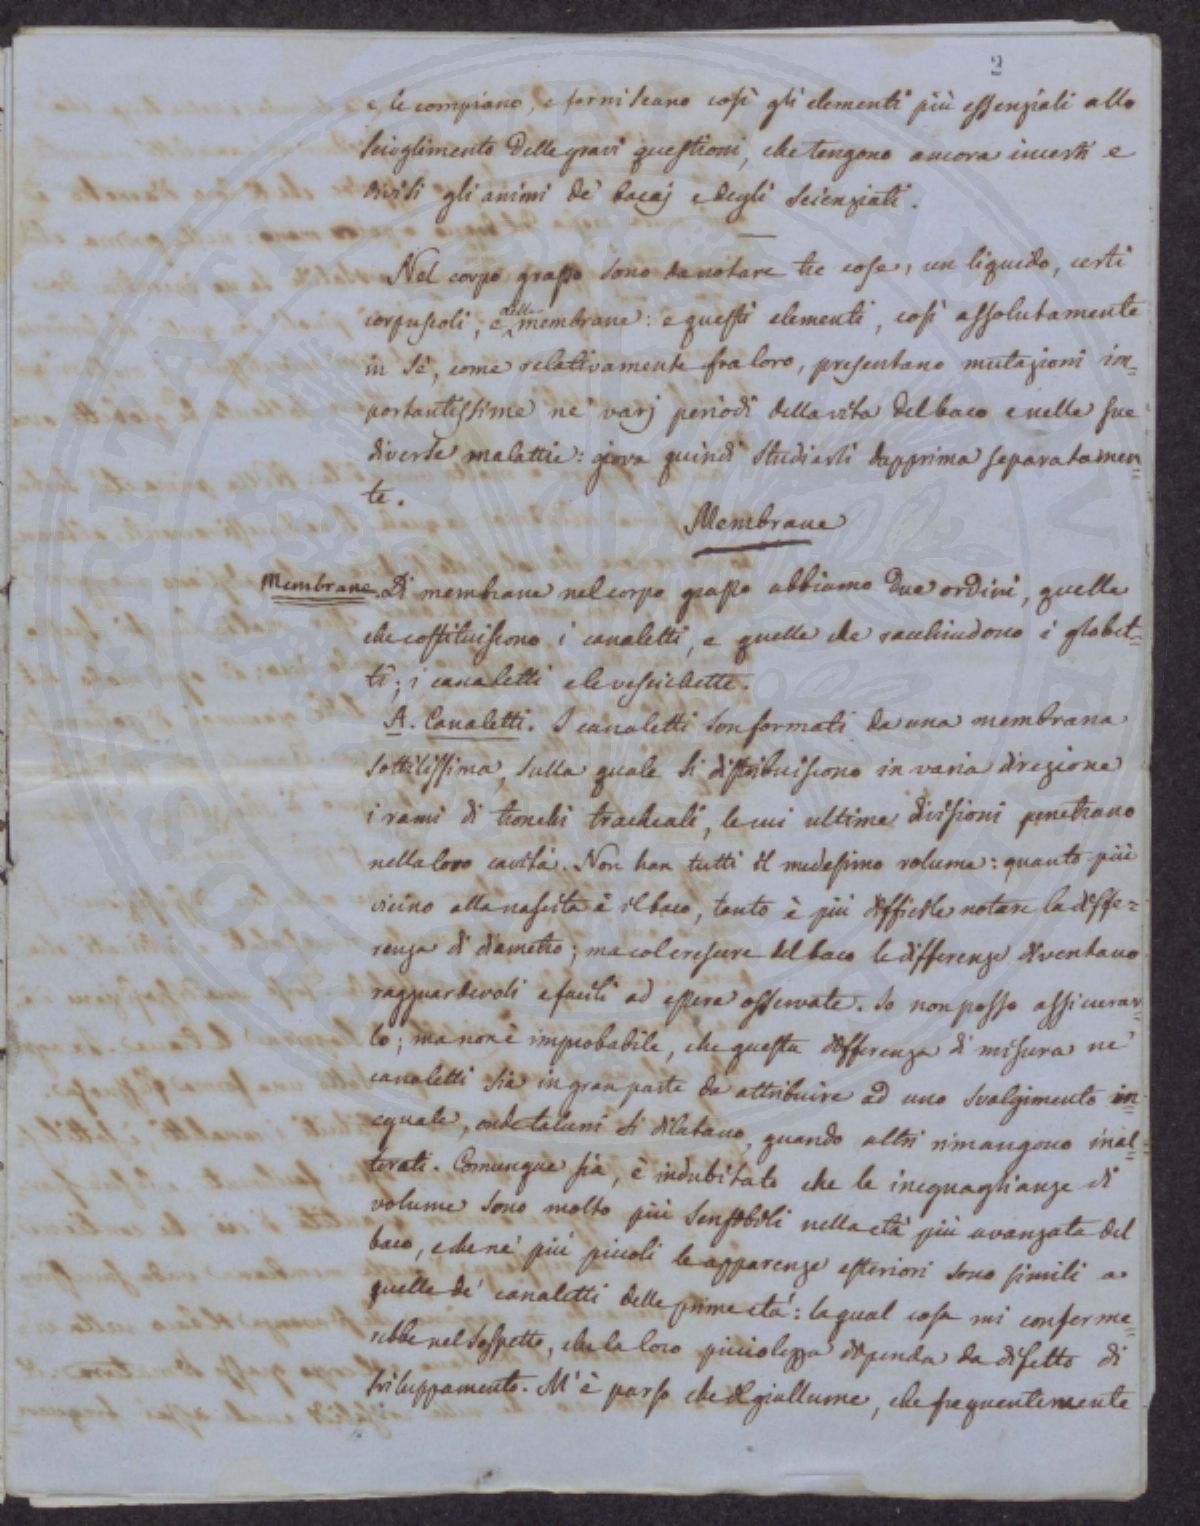 2
e le compiano, e forniscano così gli elementi più essenziali allo
scioglimento delle gravi questioni, che tengono ancora incerti e
divisi gli animi de' bacaj e degli scienziati.
Nel corpo grasso sono da notare tre cose, un liquido, certi
corpuscoli, e delle membrane: e questi elementi, così assolutamente
in sè, come relativamente fra loro, presentano mutazioni im=
portantissime ne' varj periodi della vita del baco e nelle sue
diverse malattie: giova quindi studiarli dapprima separatamen=
te.
Membrane
Membrane. Di membrane nel corpo grasso abbiamo due ordini, quelle
che costituiscono i canaletti, e quelle che racchiudono i globet=
ti; i canaletti e le vescichette.
A. Canaletti. I canaletti son formati da una membrana
sottilissima, sulla quale si distribuiscono in varia direzione
i rami di tronchi tracheali, le cui ultime divisioni penetrano
nella loro cavità. Non han tutti il medesimo volume: quanto più
vicino alla nascita è il baco, tanto è più difficile notare la diffe=
renza di diametro; ma col crescere del baco le differenze diventano
ragguardevoli e facili ad essere osservate. Io non posso assicurar=
lo; ma non è improbabile, che questa differenza di misura ne'
canaletti sia in gran parte da attribuire ad uno svolgimento in=
eguale, onde taluni si dilatano, quando altri rimangono inal=
terati. Comunque sia, è indubitato che le ineguaglianze di
volume sono molto più sensibili nella età più avanzata del
baco, e che ne' più piccoli le apparenze esteriori sono simili a
quelle de' canaletti delle prime età: la qual cosa mi conferme=
rebbe nel sospetto, che la loro picciolezza dipenda da difetto di
sviluppamento. M'è parso che il giallume, che frequentemente